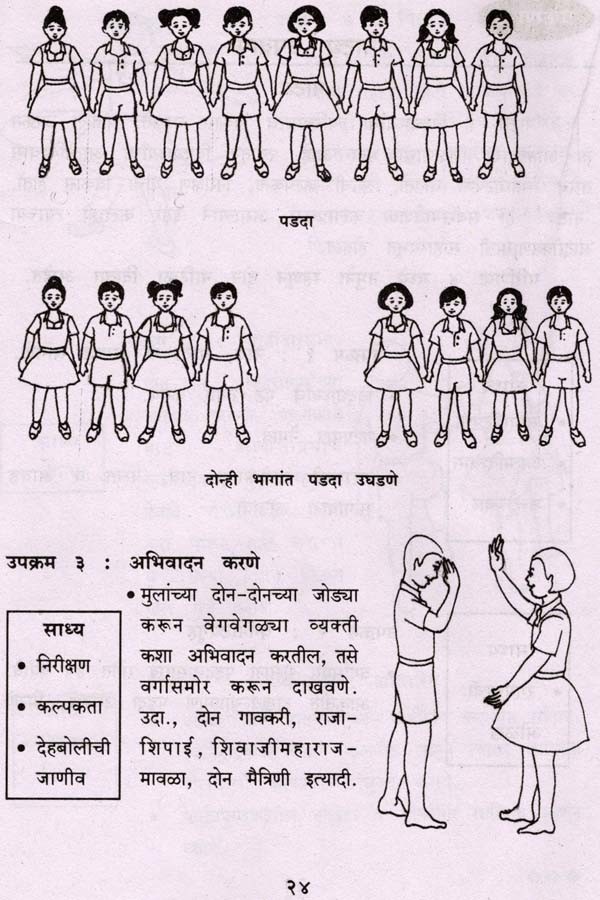 पडदा
दोन्ही भागांत पडदा उघडणे
उपक्रम ३ : अभिवादन करणे
• मुलांच्या दोन-दोनच्या जोड्या
करून वेगवेगळ्या व्यक्ती
कशा अभिवादन करतील, तसे
वर्गासमोर करून दाखवणे.
उदा., दोन गावकरी, राजा-
शिपाई, शिवाजीमहाराज-
मावळा, दोन मैत्रिणी इत्यादी.
साध्य
• निरीक्षण
• कल्पकता
• देहबोलीची
जाणीव
२४